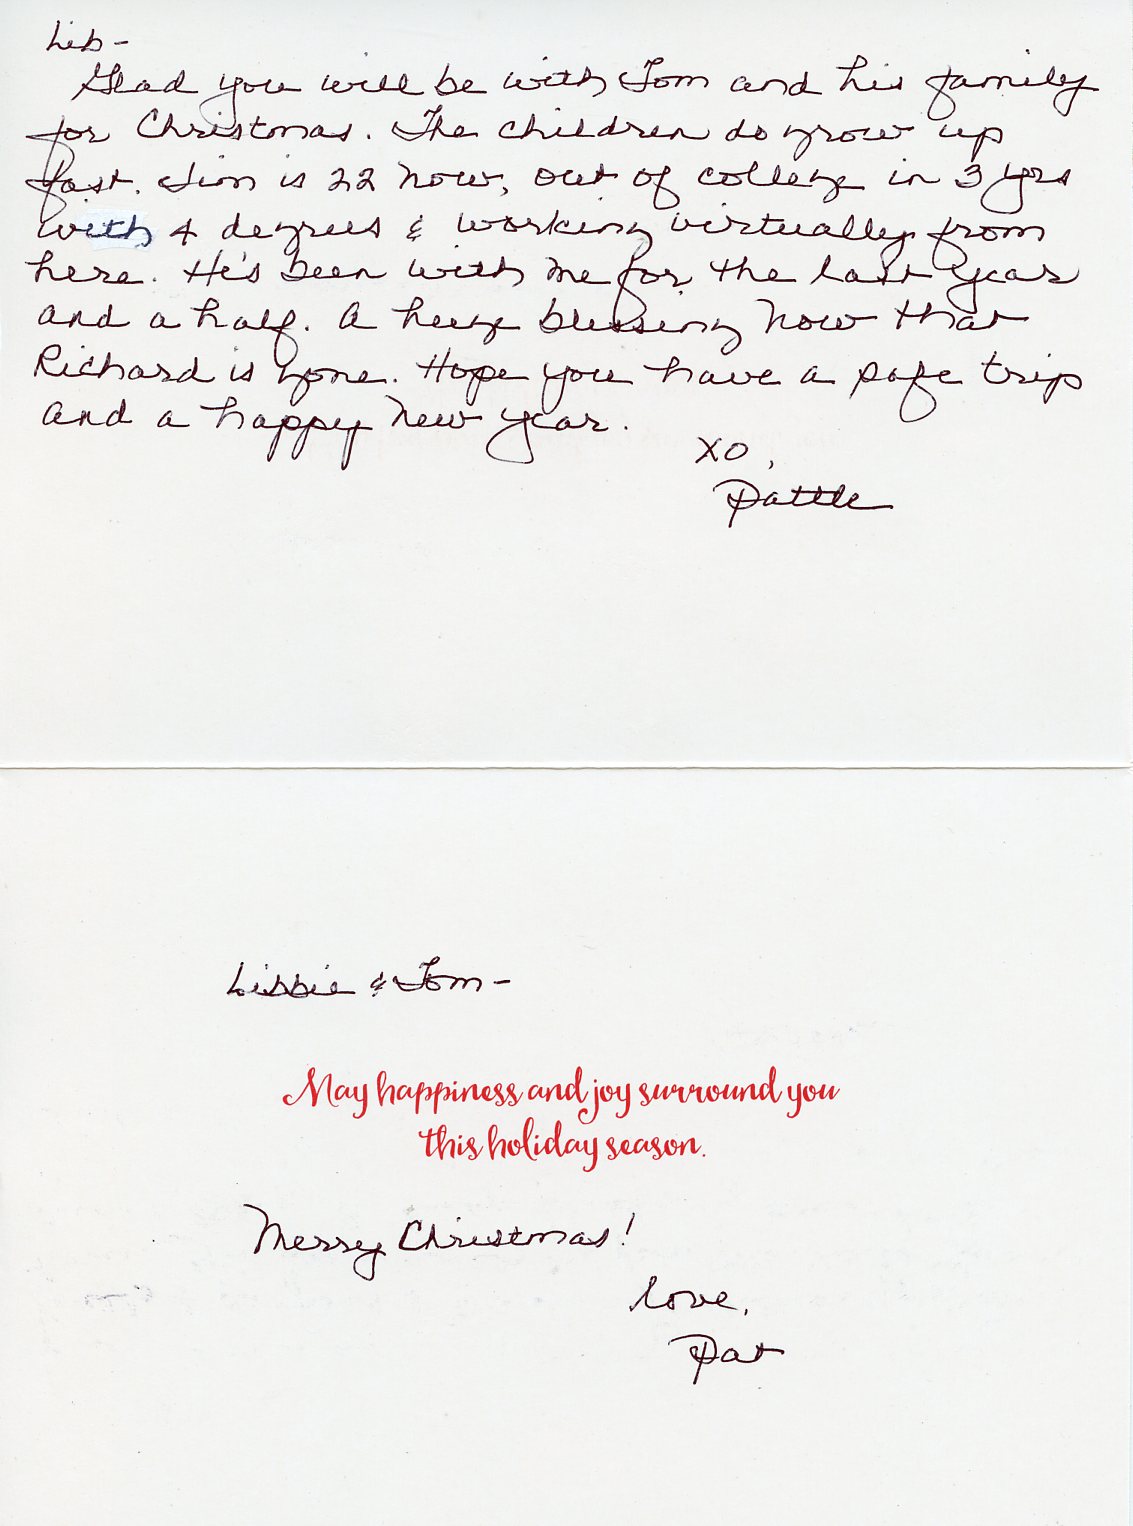 Lib-
Glad you will be with Tom and his family
for Christmas. The children do grow up
fast. Jim is 22 now, out of college in 3 yrs
with 4 degrees & working virtually from
here. He's been with me for the last year
and a half. A huge blessing now that
Richard is gone. Hope you have a safe trip
and a happy New year.
XO,
Pattie
Libbie & Tom-
May happiness and joy surround you
this holiday season.
Merry Christmas!
Love,
Pat